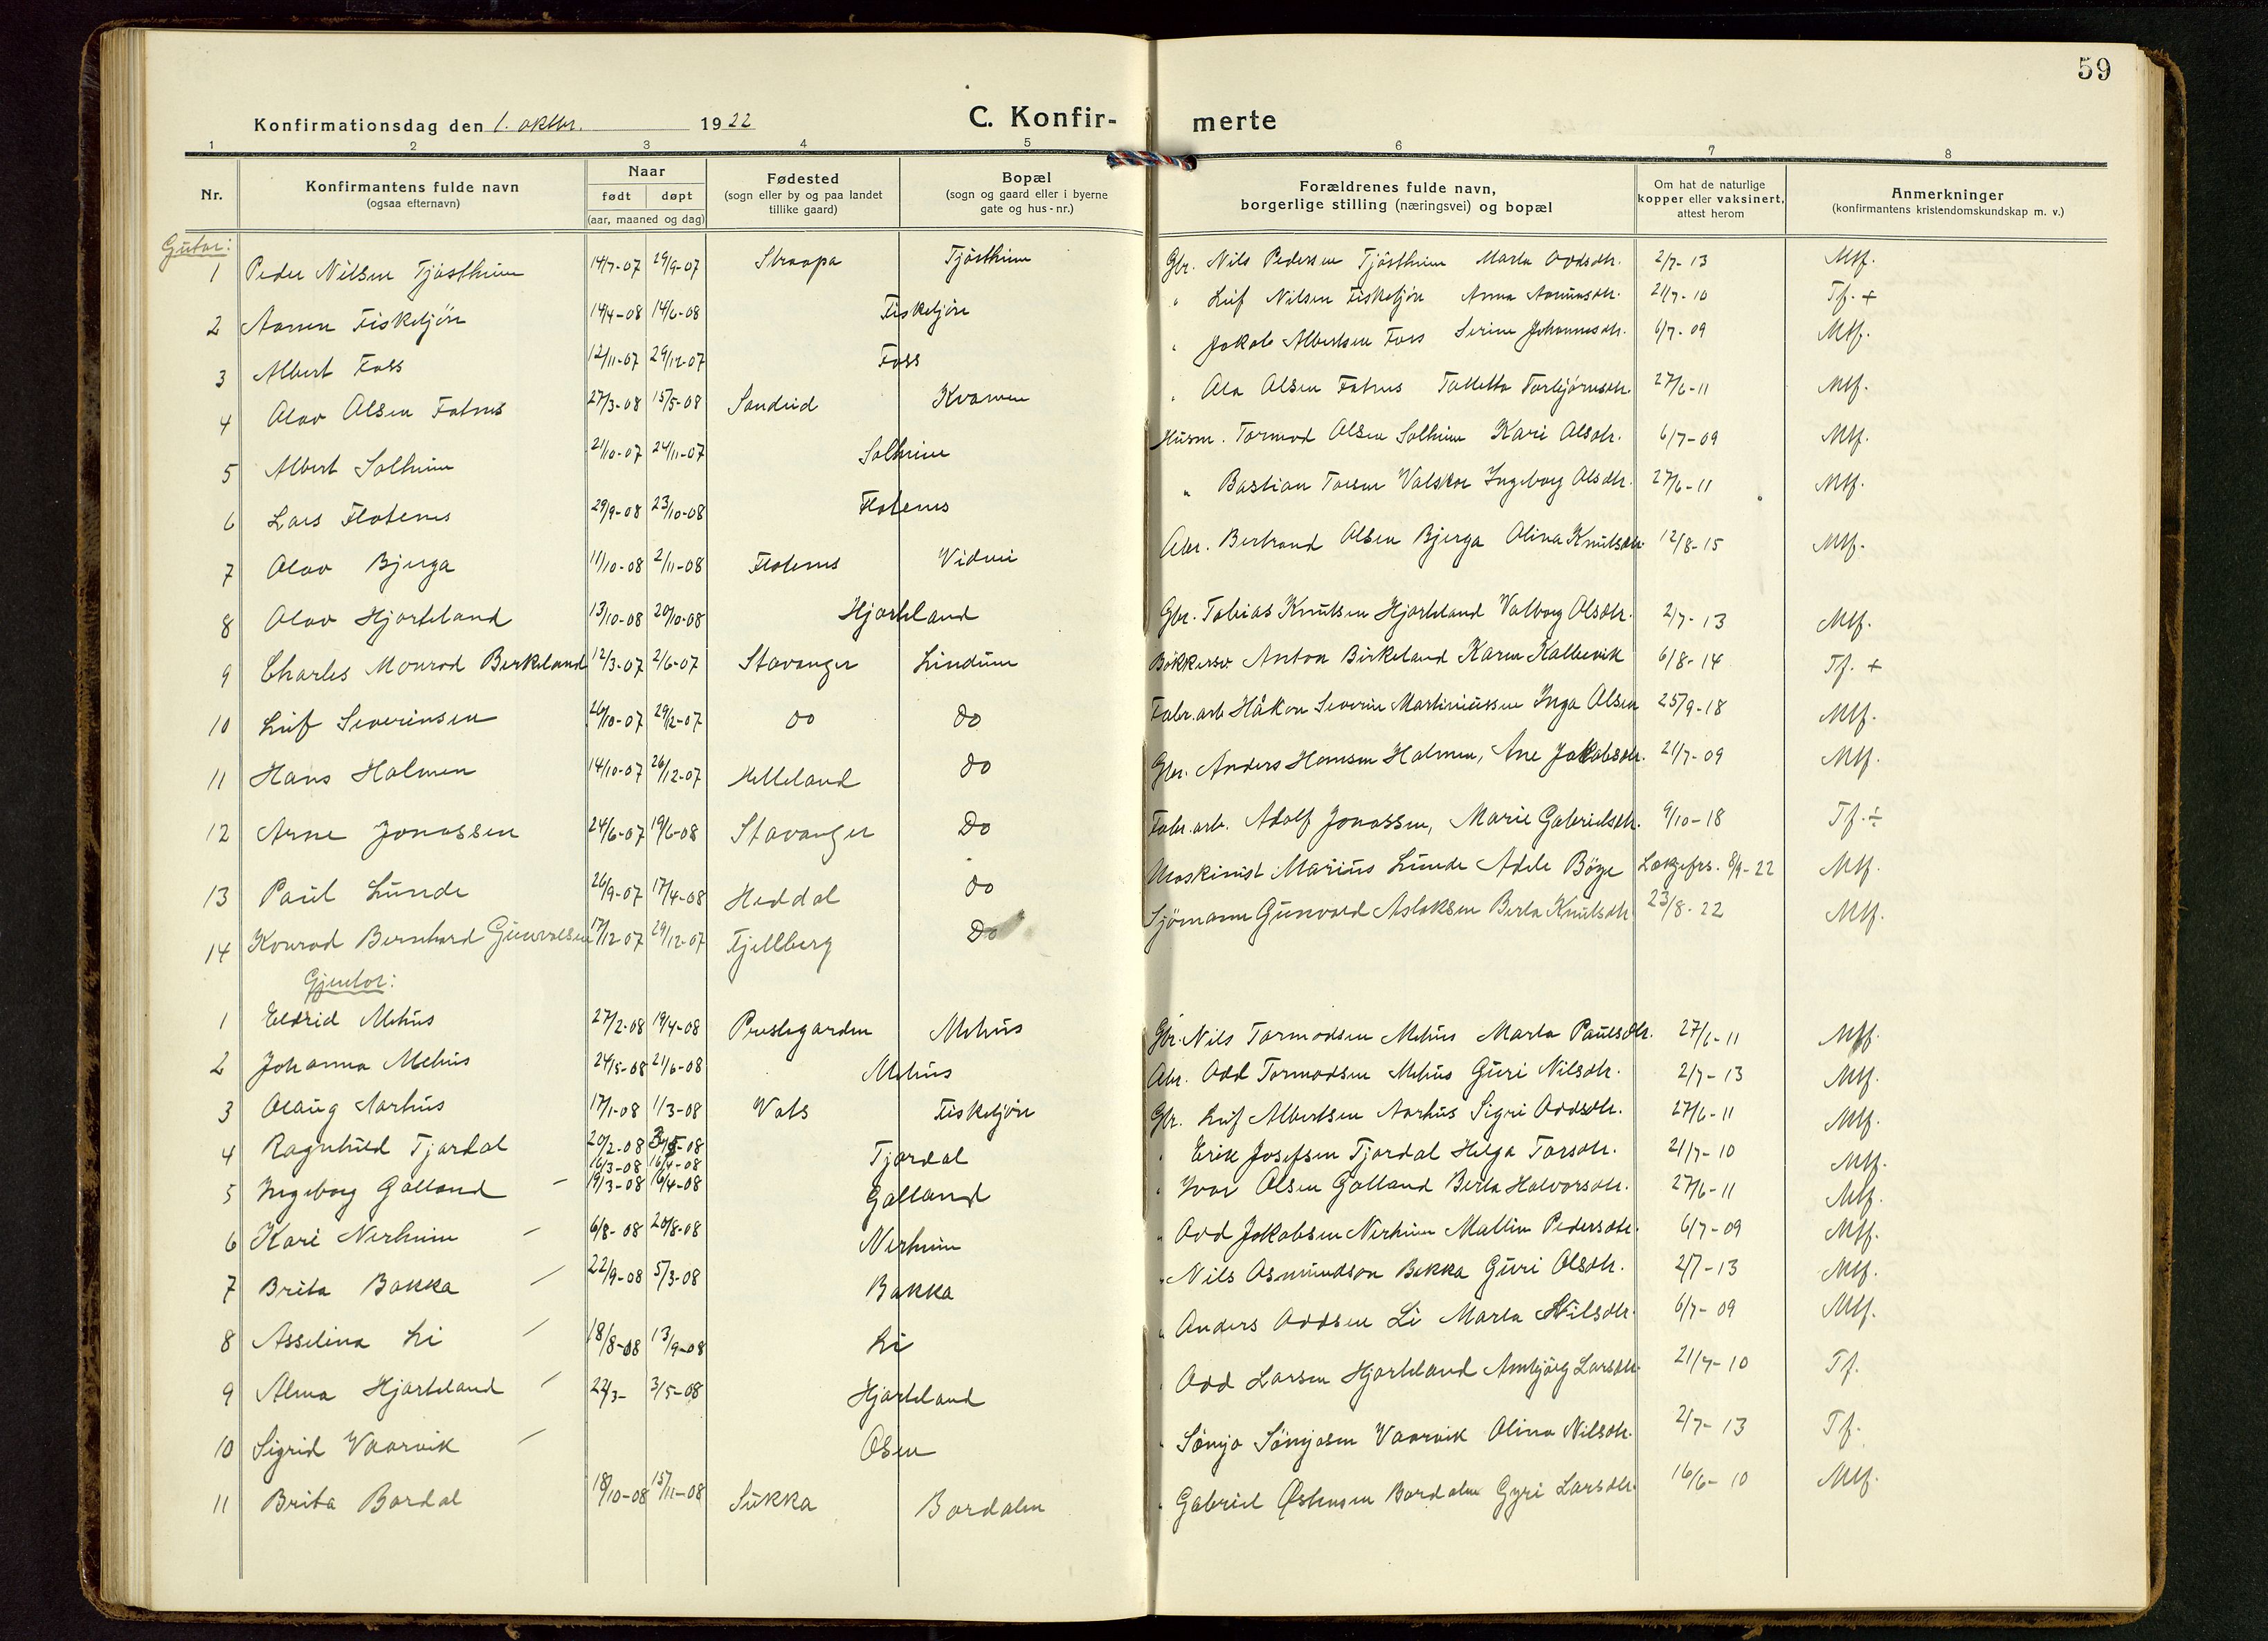 59
Konfirmationsdag den 1. oktbr. 1922 C. Konfir- merte
1 2 3 4 5 6 7 8
Nr.
Konfirmantens fulde navn
(ogsaa efternavn)
Naar
født døpt
(aar, maaned og dag)
Fødested
(sogn eller by og paa landet
tillike gaard)
Bopæl
(sogn og gaard eller i byerne
gate og hus-nr.)
Forældrenes fulde navn,
borgerlige stilling (næringsvei) og bopæl
Om hat de naturlige
kopper eller vaksinert,
attest herom
Anmerkninger
(konfirmantens kristendomskundskap m. v.)
Gutar:
1 Peder Nilsen Tjøstheim 14/7-07 29/9-07 Straapa Tjøstheim Gbr. Nils Pedersen Tjøstheim Marta Oddsdtr. 2/7-13 Mtf.
2 Aamen Fisketjøn 14/4-08 14/6-08 Fisketjøn " Leif Nilsen Fisketjøn Anna 21/7-10 Tf. +
3 Albert Foss 12/11-07 29/12-07 Foss " Jakob Albertsen Foss Serine Johannesdtr. 6/7-09 Mtf.
4 Olav Olsen Fatnes 27/3-08 15/5-08 Sandeid Kvamen " Ola Olsen Fatnes Tolletta Torbjørnsdtr. 27/6-11 Mtf.
5 Albert Solheim 21/10-07 24/11-07 Solheim Husm. Tormod Olsen Solheim Kari Olsdtr. 6/7-09 Mtf.
6 Lars Flotenes 29/9-08 23/10-08 Flotenes " Bastian Valskor Ingeborg Olsdtr. 27/6-11 Mtf.
7 Olav Bjerga 11/10-08 2/11-08 Flotenes Videi Abr. Bertrand Olsen Bjerga Olina Knutsdtr. 12/8-15 Mtf.
8 Olav Hjorteland 13/10-08 20/10-08 Hjorteland Gbr. Tobias Knutsen Hjorteland Valborg Olsdtr. 2/7-13 Mtf.
9 Charles Monrad Berkeland 12/3-07 2/6-07 Stavanger Lindum Bøkkersv Anton Birkeland Karen Kallevik 6/8-14 Tf. +
10 Leif Severinsen 26/10-07 29/12-07 do do Fabr.arb Håkon Severin Martiniussen Inga Olsen 25/9-18 Mtf.
11 Hans Holmen 14/10-07 26/12-07 Helleland do Gbr. Anders Hansen Holmen, Ane Jakobsdtr. 21/7-09 Mtf.
12 Arne Jonassen 24/6-07 19/6-08 Stavanger Do Fabr.arb. Adolf Jonassen, Marie Gabrielsdtr. 9/10-18 Tf. ÷
13 Paul Lunde 26/9-07 17/4-08 Heddal do Maskinist Marius Lunde Adele Böge Lækgefrs. 8/9-22 Mtf.
14 Konrad Bernhard Gunvalsen 17/12 07 29/12-07 Fjellberg Do Sjömann Gunvald Aslaksen Berta Knutsdtr. 23/8-22 Mtf.
Gjentor:
1 Eldrid Mehus 27/2-08 19/4-08 Prestegarden Mehus Gbr. Nils Tormodsen Mehus Marta Paulsdtr. 27/6-11 Mtf.
2 Johanna Mehus 24/5-08 21/6-08 Mehus Abr. Odd Tormodsen Mehus Guri Nilsdtr. 2/7-13 Mtf.
3 Olaug Aarhus 17/1-08 1/3-08 Vats Fisketjøn Gbr. Leif Albertsen Aarhus Sigri Oddsdtr. 27/6-11 Mtf.
4 Ragnhild Tjordal 20/2-08 Tjordal " Erik Josefsen Tjordal Helga Torsdtr. 21/7-10 Mtf.
16/3-08 16/4-08
5 Ingeborg Galland - 19/3-08 16/4-08 Galland " Ivar Olsen Galland Berta Halvorsdtr. 27/6-11 Mtf.
6 Kari Nerheim - 6/8-08 20/8-08 Nerheim " Odd Jakobsen Nerheim Mallin Pedersdtr. 6/7-09 Mtf.
7 Brita Bakka - 22/9-08 5/3-08 Bakka " Nils Osmundson Bakka Guri Olsdtr. 2/7-13 Mtf.
8 Asselina Li - 18/8-08 13/9-08 Li " Anders Oddsen Li Marta Nilsdtr. 6/7-09 Mtf.
9 Alma Hjorteland - 22/3- 3/5-08 Hjorteland " Odd Larsen Hjorteland Annbjørg Larsdtr. 21/7-10 Tf.
10 Sigrid Vaarvik - Osen " Sönja Sönjasen Vaarvik Olina Nilsdtr. 2/7-13 Tf.
11 Brita Bordal 18/10-08 15/11-08 Sukka Bordalen " Gabriel Østensen Bordalen Gyri Larsdtr. 16/6-10 Mtf.